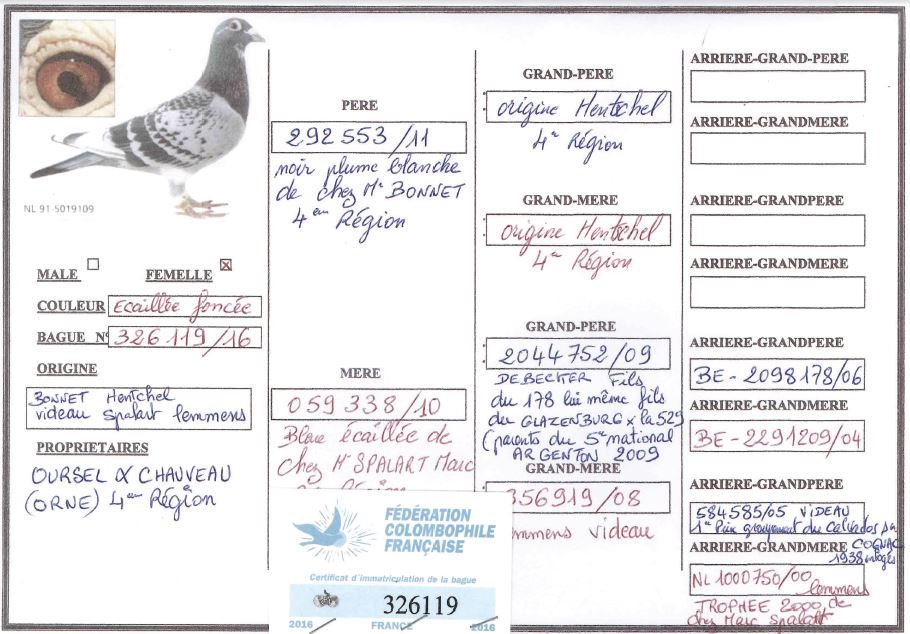 NL 91-5019109
MALE FEMELLE
COULEUR Ecaillée foncée
BAGUE N° 326 119/16
ORIGINE
BONNET Hentchel
videau spalart lemmens
PROPRIETAIRES
OURSEL & CHAUVEAU
(ORNE) 4em Région
PERE
292 553/11
noir plume blanche
de chez Mr BONNET
4em Région
MERE
059 338/10
Bleue écaillée de
chez Mr SPALART Marc
GRAND-PERE
origine Hentschel
4e Région
GRAND-MERE
origine Hentschel
4e Région
GRAND-PERE
2044752/09
DEBECKER Fils
du 178 lui même fils
du GLAZENBURG x la 529
(parents du 5e national
ARGENTON 2009
GRAND-MERE
356919/08
mmens videau
ARRIERE-GRAND-PERE
ARRIERE-GRANDMERE
ARRIERE-GRANDPERE
ARRIERE-GRANDMERE
ARRIERE-GRANDPERE
BE-2098178/06
ARRIERE-GRANDMERE
BE-2291209/04
ARRIERE-GRANDPERE
584585/05 VIDEAU
1er Prix groupement du Calvados sur
COGNAC
ARRIERE-GRANDMERE
1938 engagés
NL 1000750/00
lemmens
TROPHEE 2000 de
chez Marc Spalart
FÉDÉRATION
COLOMBOPHILE
FRANÇAISE
Certificat d'immatriculation de la bague
326119
2016 FRANCE 2016